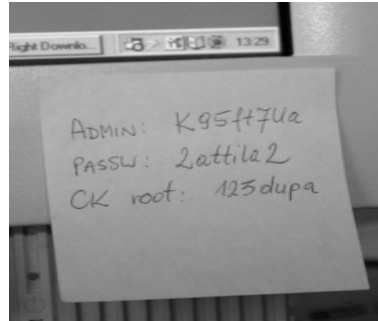 Right Downlo...
13:29
ADMIN: K95ft7Ua
PASSW: 2attila2
CK root: 123dupa